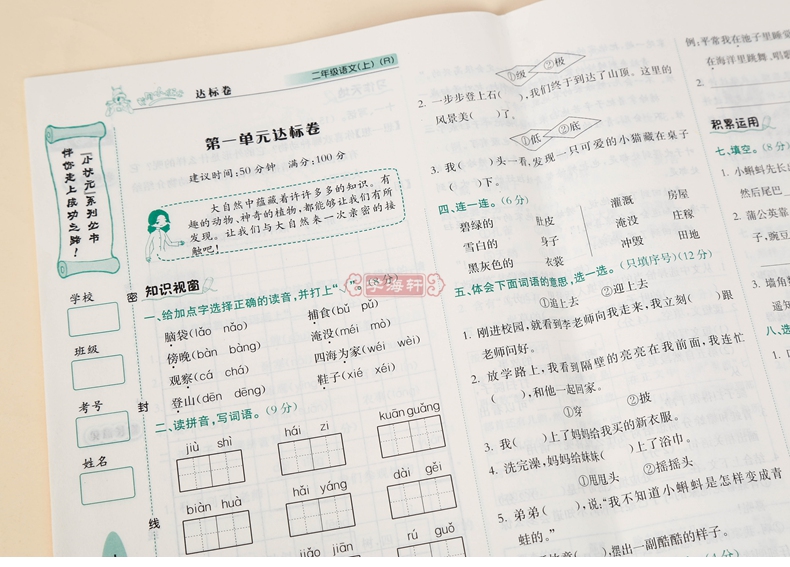 二年级语文(上) (R)
达标卷
第一单元达标卷
建议时间:50分钟 满分:100分
大自然中蕴藏着许许多多的知识。有
趣的动物、神奇的植物,都能够让我们有所
发现。让我们与大自然来一次亲密的接
触吧!
“小状元”系列丛书
伴你走上成功之路!
学校
班级
考号
姓名
密
封
线
知识视窗
一、给加点字选择正确的读音,并打上“
脑袋(lǎo nǎo) 捕食(bǔ pǔ)
傍晚(bàn bàng) 淹没(méi mò)
观察(cá chá) 四海为家(wéi wèi)
登山(dēn dēng) 鞋子(xié xéi)
二、读拼音,写词语。(9分)
jiù shì hái zi kuān guǎng
biàn huà hǎi yáng dài gěi
jiǎo jiān rú guǒ
①级 ②极
2. 一步步登上石( ),我们终于到达了山顶。这里的
风景美( )了。
①低 ②底
3. 我( )头一看,发现一只可爱的小猫藏在桌子
( )下。
四、连一连。(6分)
碧绿的 肚皮 灌溉 房屋
雪白的 身子 淹没 庄稼
黑灰色的 衣裳 冲毁 田地
五、体会下面词语的意思,选一选。(只填序号)(12分)
①追上去 ②迎上去
1. 刚进校园,就看到李老师向我走来,我立刻( )跟
老师问好。
2. 放学路上,我看到隔壁的亮亮在我前面,我连忙
( ),和他一起回家。
①穿 ②披
3. 我( )上了妈妈给我买的新衣服。
4. 洗完澡,妈妈给妹妹( )上了浴巾。
①甩甩头 ②摇摇头
5. 弟弟( ),说:“我不知道小蝌蚪是怎样变成青
蛙的。”
),摆出一副酷酷的样子。
例:平常我在池子里睡觉
在海洋里跳舞、唱歌
2.
积累运用
七、填空。(8分)
1. 小蝌蚪先长
然后尾巴
2. 蒲公英靠
子,豌豆
3. 墙角
遥知
八、选
学海轩